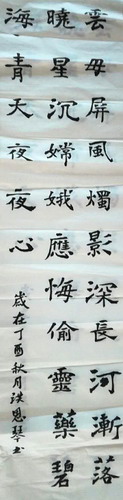 雲母屏風燭影深長河漸落
曉星沉嫦娥應悔偷靈藥碧
海青天夜夜心
歲在丁酉秋月洪恩琴书